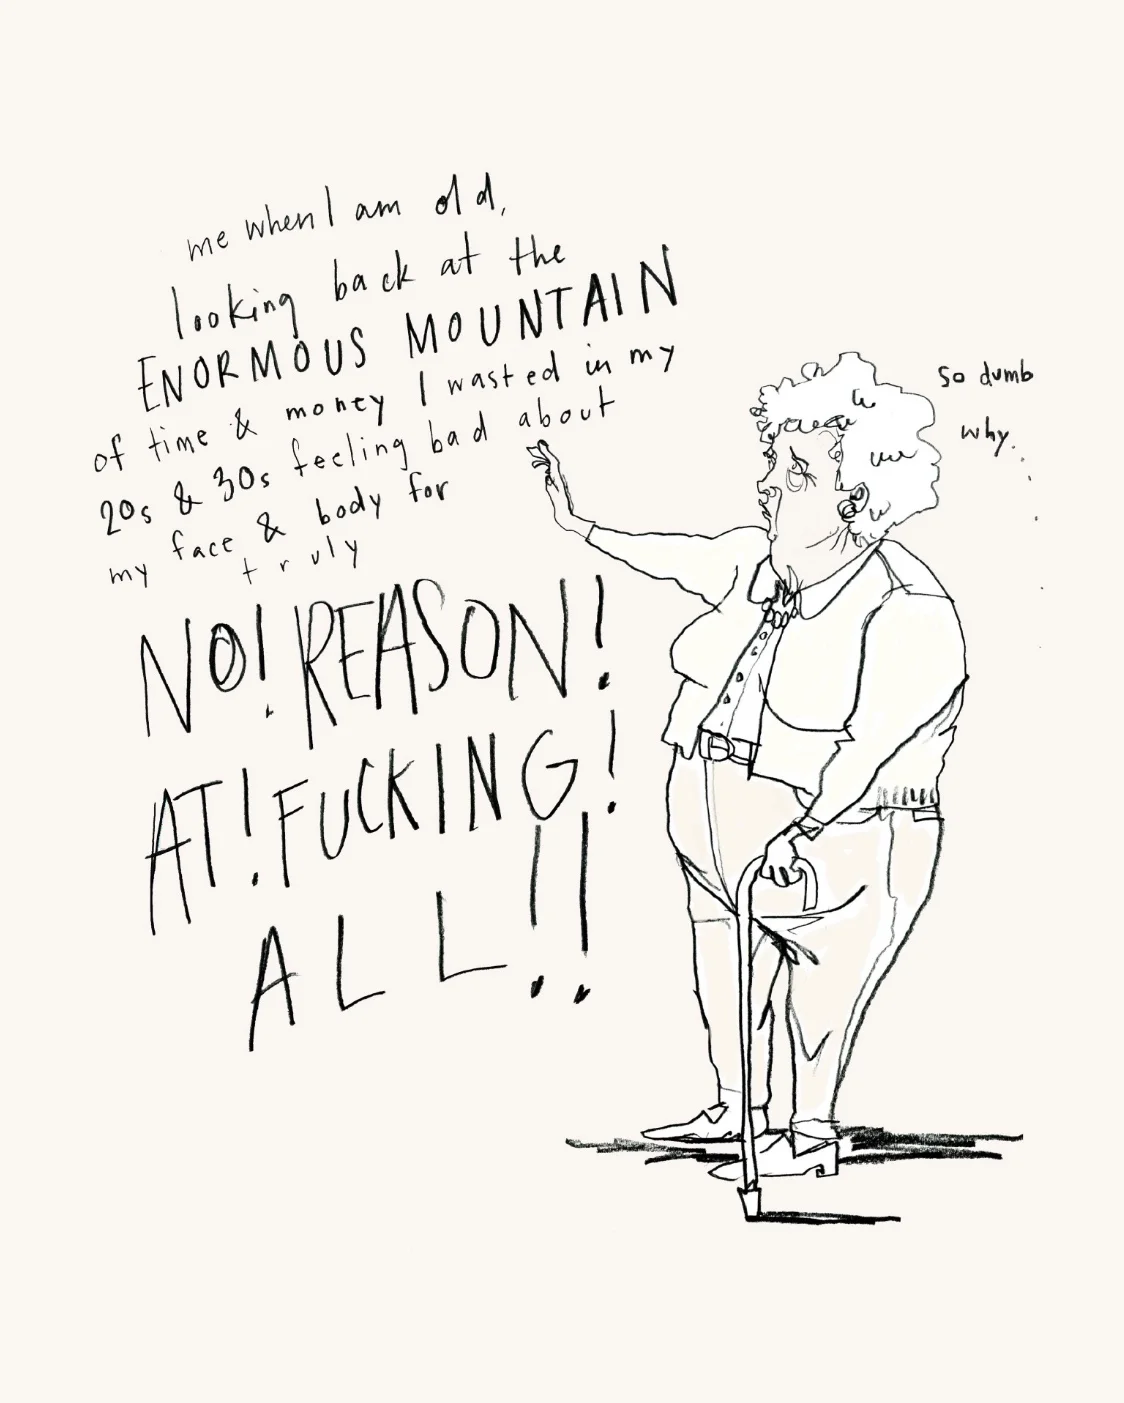 me when I am old,
looking back at the
ENORMOUS MOUNTAIN
of time & money I wasted in my
20s & 30s feeling bad about
my face & body for
truly
NO! REASON!
AT! FUCKING!
ALL!!
so dumb
why.